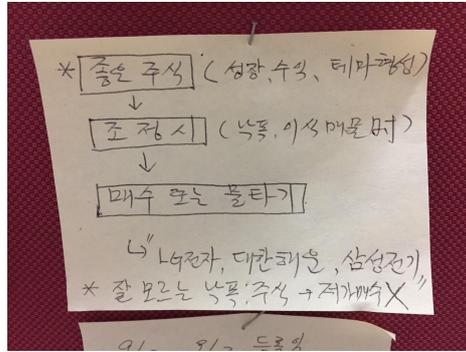 * 좋은 주식 (성장, 수익, 테마형성)
↓
조정시 (낙폭, 이식매물 時)
↓
매수 또는 물타기
↳ "LG전자, 대한해운, 삼성전기"
* 잘 모르는 낙폭 주식 → 저가매수 X